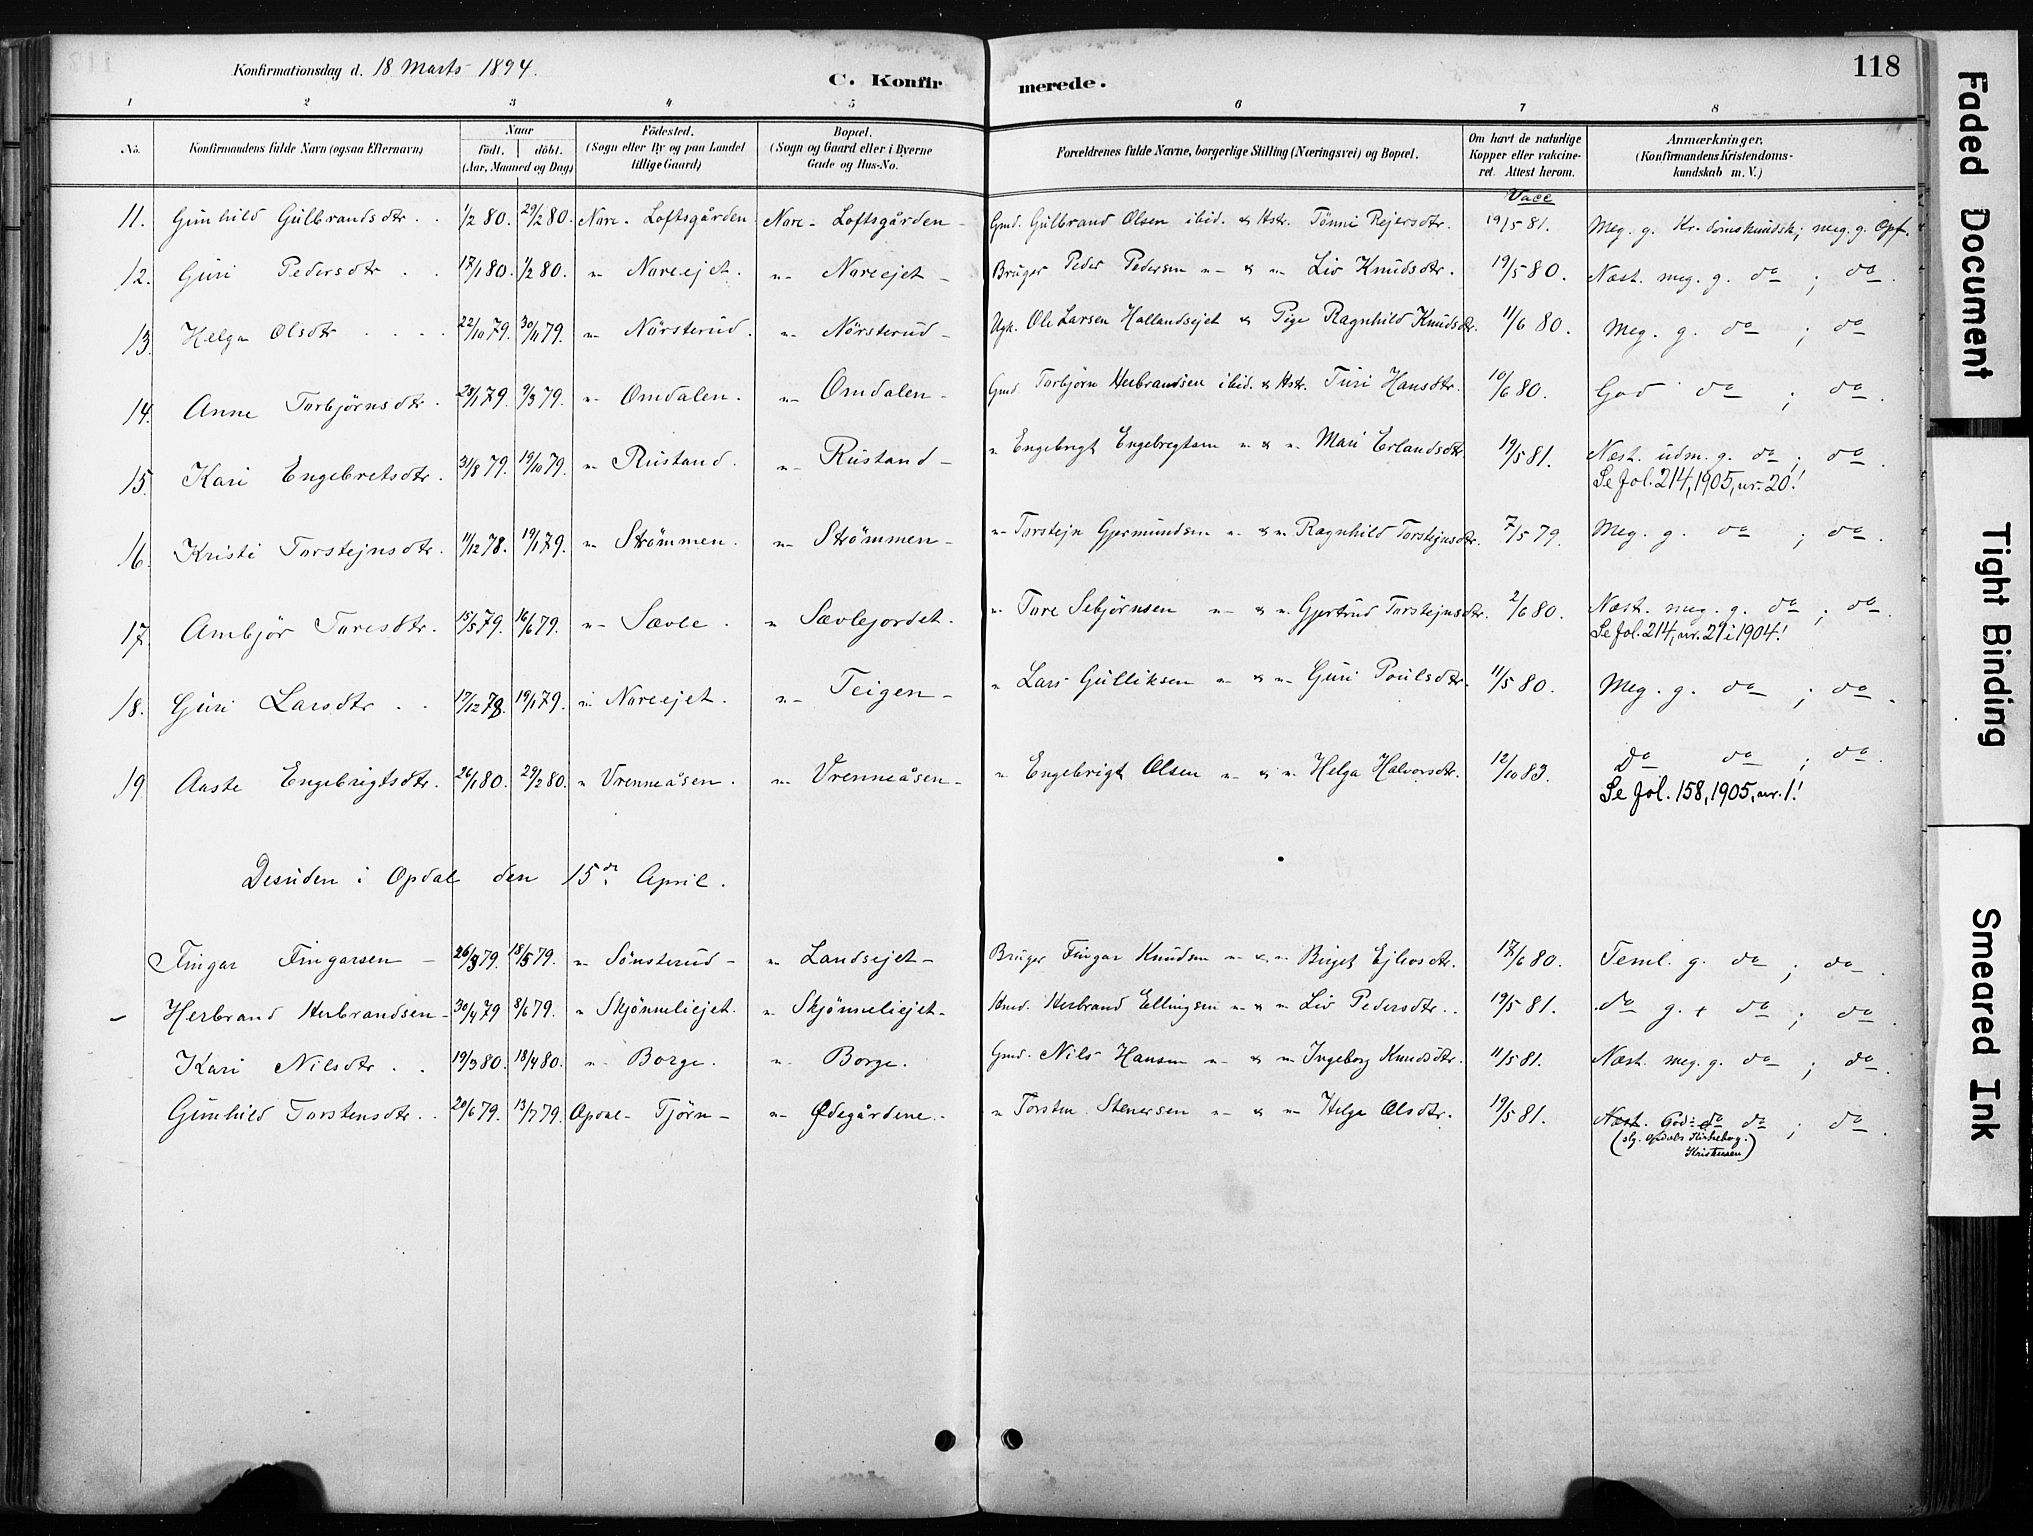 Konfirmationsdag d. 18 Marts 1894.
C. Konfirmerede.
118
1 2 3 4 5 6 7 8
No. Konfirmandens fulde Navn (ogsaa Efternavn) Naar Født. døbt. (Aar, Maaned og Dag) Fødested. (Sogn eller By og paa Landet tillige Gaard) Bopæl. (Sogn og Gaard eller i Byerne Gade og Hus-No. Forældrenes fulde Navne, borgerlige Stilling (Næringsvei) og Bopæl. Om havt de naturlige Kopper eller vakcineret. Attest herom. Anmærkninger. (Konfirmandens Kristendomskundskab m. V.)
Vacc
11. Gunhild Gulbrandsdtr. . 1/2 80. 29/2 80. Nore - Loftsgården Nore - Loftsgården - Gmd. Gulbrand Olsen ibid. & Hstr. Tønni Rejersdtr. 19/5 81. Meg. g. Kr-domskundsk; meg. g. Opf.
12. Guri Pedersdtr . . 17/1 80. 1/2 80. " Noreejet. " Noreejet - Bruger Peder Pedersen " & " Liv Knudsdtr. 19/5 80. Næst. meg. g. do ; do.
13. Helga Olsdtr . . . . 22/10 79. 30/11 79. " Nørsterud. " Nørsterud - Ugk. Ole Larsen Hallandsejet & Pige Ragnhild Knudsdtr. 11/6 80. Meg. g. do ; do
14. Anne Torbjørnsdtr. 28/1 79. 9/3 79. " Omdalen. " Omdalen - Gmd. Torbjørn Herbrandsen ibid. & Hstr. Turi Hansdtr. 10/6 80. God do ; do.
15. Kari Engebretsdtr. 31/8 79. 19/10 79. " Rustand. " Rustand - " Engebrigt Engebregtsen " & " Mari Erlandsdtr. 19/5 81. Næst. udm. g. do ; do.
Se fol. 214, 1905, nr. 20!
16. Kristi Torstejnsdtr. 11/12 78. 19/1 79. " Strømmen. " Strømmen - " Torstejn Gjermundsen " & " Ragnhild Torstejnsdtr. 7/5 79. Meg. g. do ; do.
17. Ambjør Toresdtr. 15/5 79. 16/6 79. " Sævle. " Sævlejordet. " Tore Sebjørnsen " & " Gjertrud Torstejnsdtr. 2/6 80. Næst. meg. g. do ; do.
Se fol. 214, nr. 29 i 1904!
18. Guri Larsdtr . . 17/12 78. 19/1 79. " Noreejet. " Teigen - " Lars Gulliksen " & " Guri Poulsdtr. 11/5 80. Meg. g. do ; do.
19. Aaste Engebrigtsdtr. 26/1 80. 29/2 80. " Vrenneåsen. " Vrenneåsen - " Engebrigt Olsen " & " Helga Halvorsdtr. 12/10 83. Do do ; do.
Se fol. 158, 1905, nr. 1!
Desuden i Opdal den 15de April.
Fingar Fingarsen - 26/3 79. 18/5 79. " Sønsterud - " Landsejet - Bruger Fingar Knudsen " & " Birget Ejlevsdtr. 17/6 80. Teml. g. do ; do.
- Herbrand Herbrandsen - 30/4 79 8/6 79. " Skjønneliejet. " Skjønneliejet - Hmd. Herbrand Ellingsen " & " Liv Pedersdtr. . 19/5 81. do g. + do ; do.
Kari Nilsdtr . . 19/3 80. 18/4 80. " Borge. " Borge. Gmd. Nils Hansen " & " Ingeborg Knudsdtr. 11/5 81. Næst. meg. g. do ; do.
Gunhild Torstensdtr. . 20/6 79. 13/7 79. Opdal - Tjørn - " Ødegårdene. - " Torsten Stenersen " & " Helga Olsdtr. 19/5 81. Næst. God do do ; do.
(slg. Opdals Kirkebog. Kristensen)
Faded Document
Tight Binding
Smeared Ink